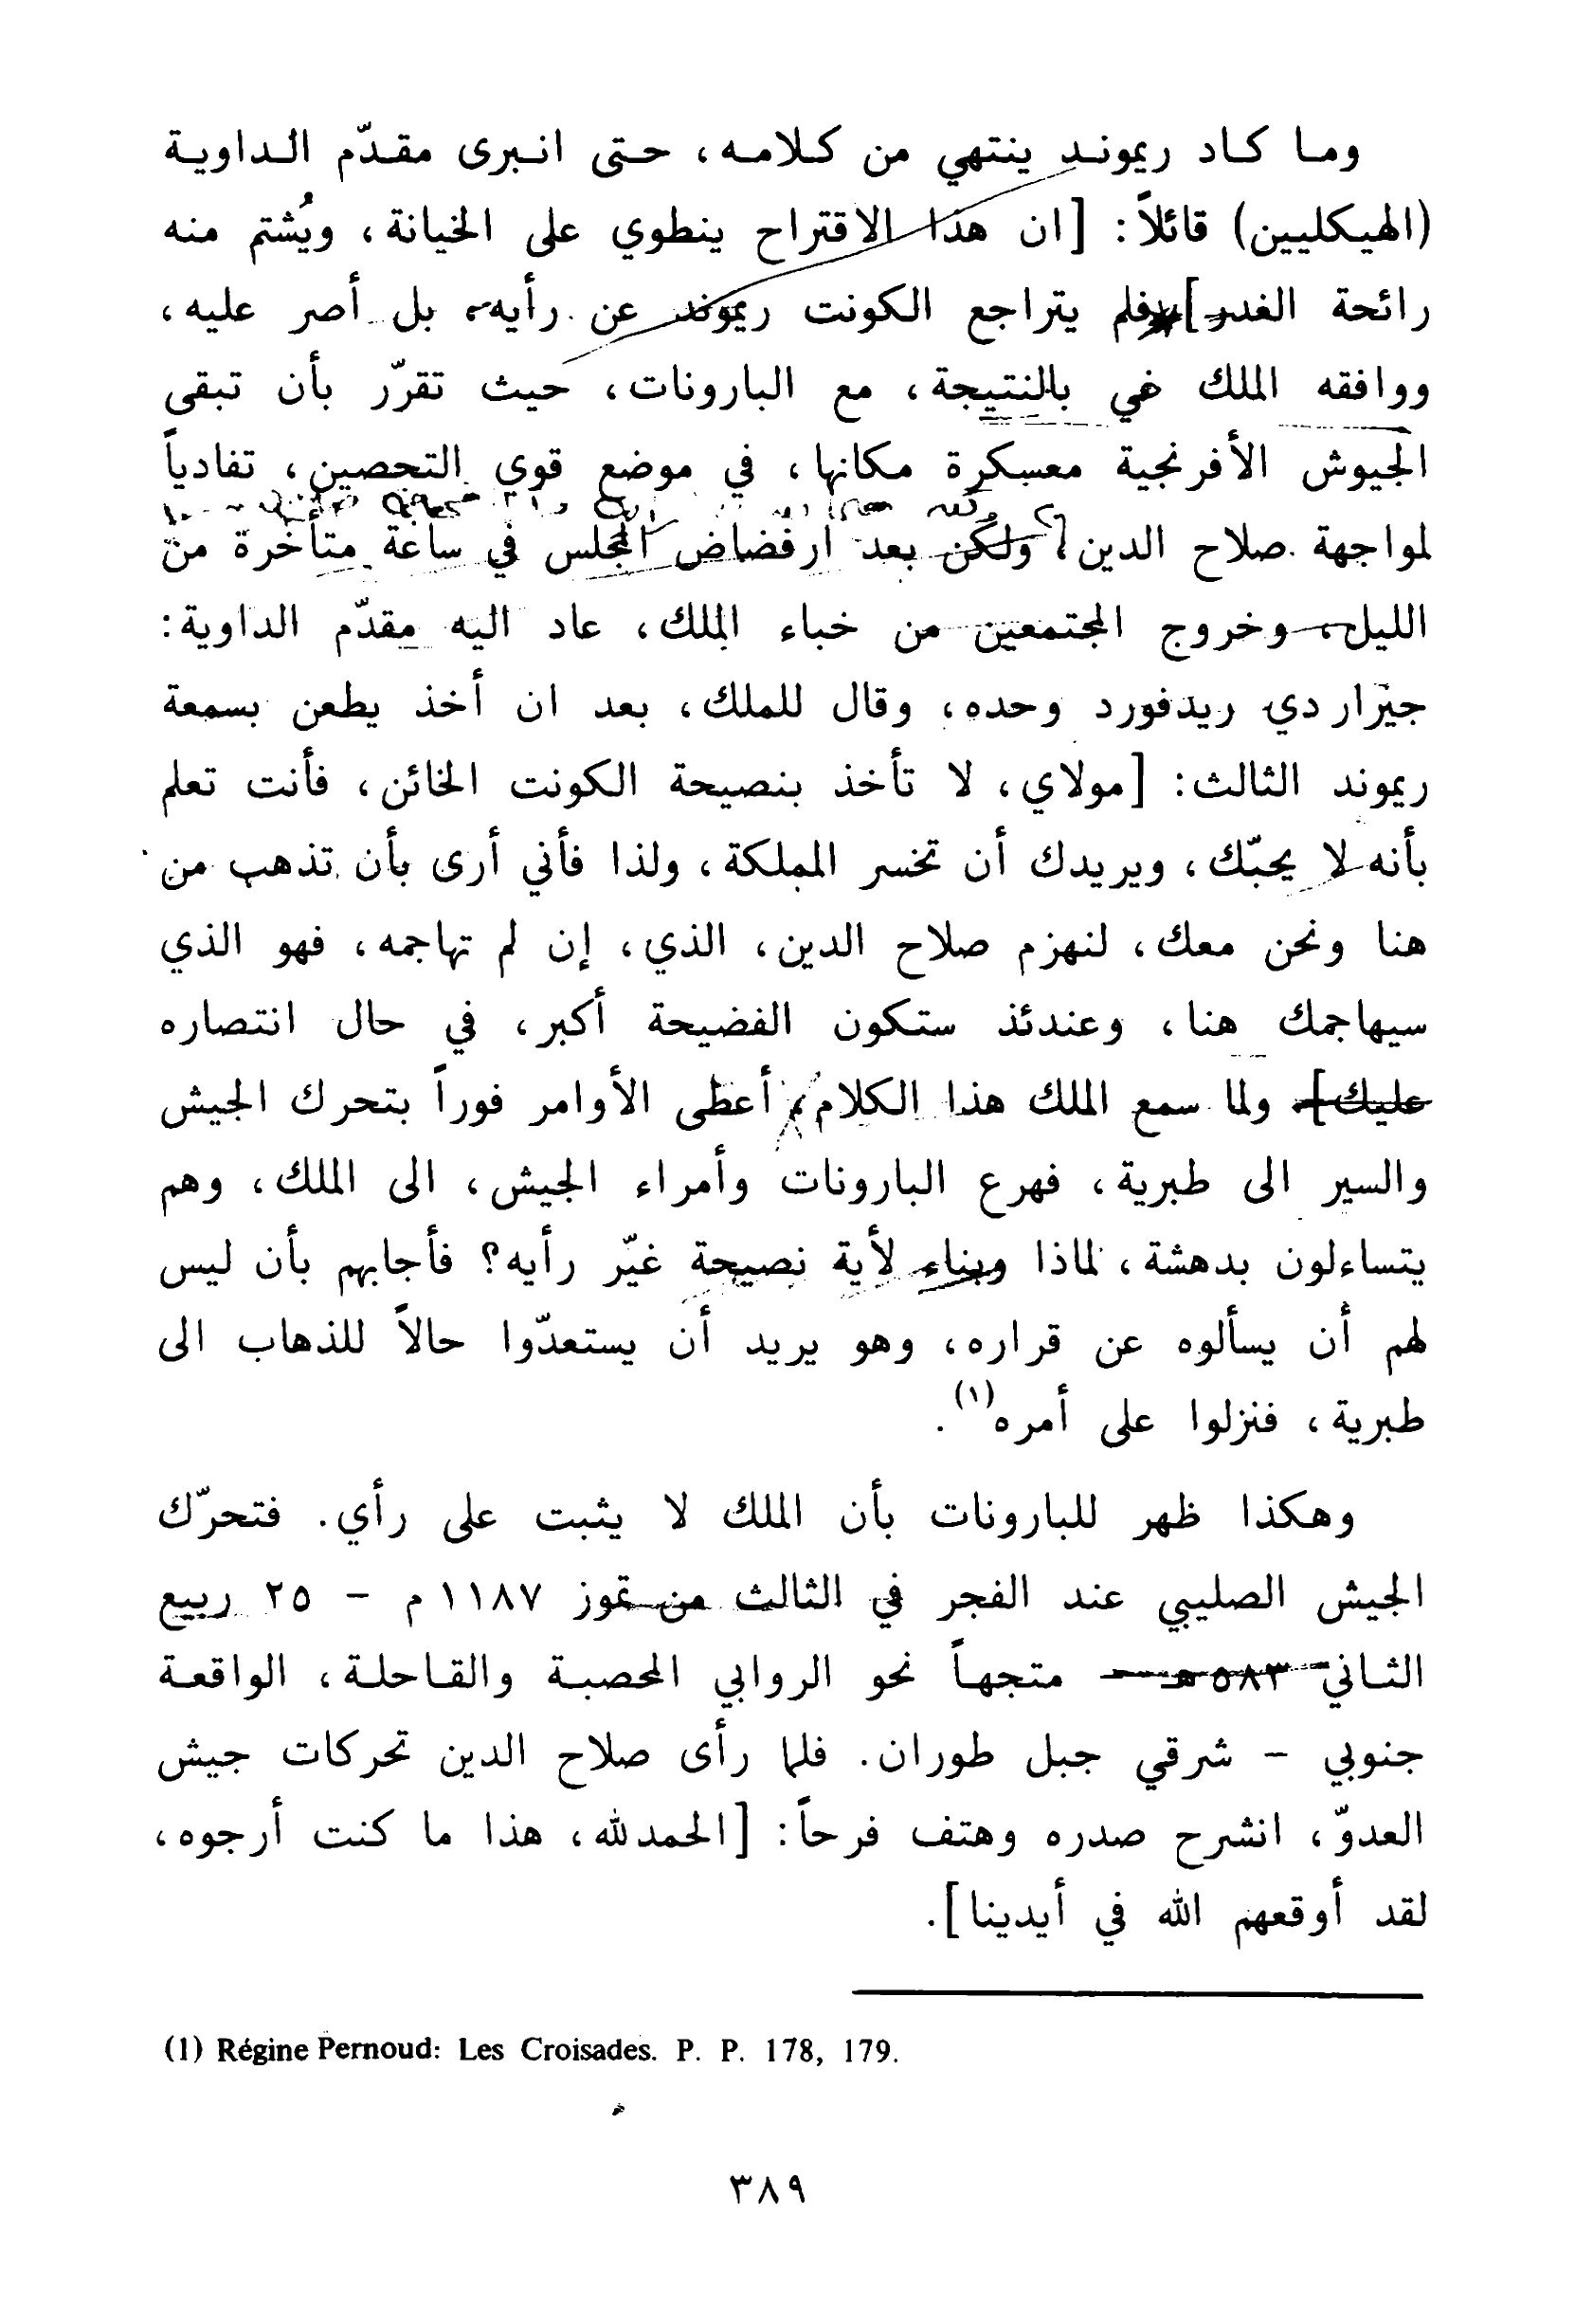 وما كاد ريموند ينتهي من كلامه، حتى انبرى مقدّم الداوية
(الهيكليين) قائلاً: [ان هذا الاقتراح ينطوي على الخيانة، ويُشتم منه
رائحة الغدر] فلم يتراجع الكونت ريموند عن رأيه، بل أصر عليه،
ووافقه الملك غي بالنتيجة، مع البارونات، حيث تقرّر بأن تبقى
الجيوش الأفرنجية معسكرة مكانها، في موضع قوي التحصين، تفادياً
لمواجهة صلاح الدين، ولكن بعد ارفضاض المجلس في ساعة متأخرة من
الليل، وخروج المجتمعين من خباء الملك، عاد اليه مقدّم الداوية:
جيرار دي ريدفورد وحده، وقال للملك، بعد ان أخذ يطعن بسمعة
ريموند الثالث: [مولاي، لا تأخذ بنصيحة الكونت الخائن، فأنت تعلم
بأنه لا يحبّك، ويريدك أن تخسر المملكة، ولذا فأني أرى بأن تذهب من
هنا ونحن معك، لنهزم صلاح الدين، الذي، إن لم تهاجمه، فهو الذي
سيهاجمك هنا، وعندئذ ستكون الفضيحة أكبر، في حال انتصاره
عليك]. ولما سمع الملك هذا الكلام، أعطى الأوامر فوراً بتحرك الجيش
والسير الى طبرية، فهرع البارونات وأمراء الجيش، الى الملك، وهم
يتساءلون بدهشة، لماذا وبناء لأية نصيحة غيّر رأيه؟ فأجابهم بأن ليس
لهم أن يسألوه عن قراره، وهو يريد أن يستعدّوا حالاً للذهاب الى
طبرية، فنزلوا على أمره(١).
وهكذا ظهر للبارونات بأن الملك لا يثبت على رأي. فتحرّك
الجيش الصليبي عند الفجر في الثالث من تموز ١١٨٧ م - ٢٥ ربيع
الثاني ٥٨٣ هـ - متجهاً نحو الروابي المحصبة والقاحلة، الواقعة
جنوبي - شرقي جبل طوران. فلما رأى صلاح الدين تحركات جيش
العدوّ، انشرح صدره وهتف فرحاً: [الحمدلله، هذا ما كنت أرجوه،
لقد أوقعهم الله في أيدينا].
(1) Régine Pernoud: Les Croisades. P. P. 178, 179.
٣٨٩